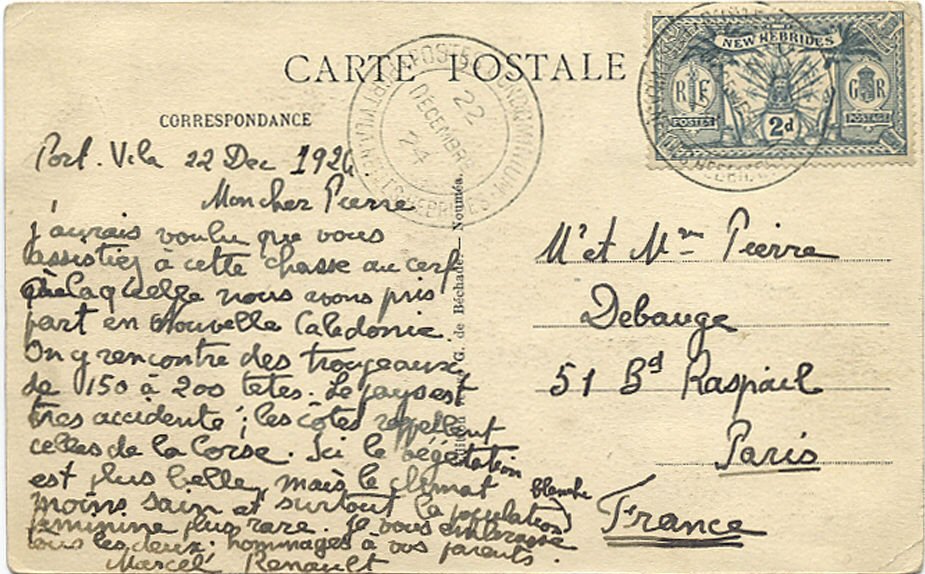 CARTE POSTALE
CORRESPONDANCE
Port. Vila 22 Dec 1924.
Mon cher Pierre
j'aurais voulu que vous
assistiez à cette chasse au cerf
à laquelle nous avons pris
part en Nouvelle Caledonie.
On y rencontre des troupeaux
de 150 à 200 têtes. Le pays est
très accidenté ; les côtes rappellent
celles de la Corse. Ici la végétation
est plus belle, mais le climat
moins sain et surtout la population blanche
féminine plus rare. Je vous embrasse
tous les deux. hommages à vos parents.
Marcel Renault
G. de Béchade. — Nouméa.
22
DÉCEMBRE
24
NEW HEBRIDES
R F
POSTES
2d
G R
POSTAGE
Mr et Mme Pierre
Debauge
51 Bd Raspail
Paris
France